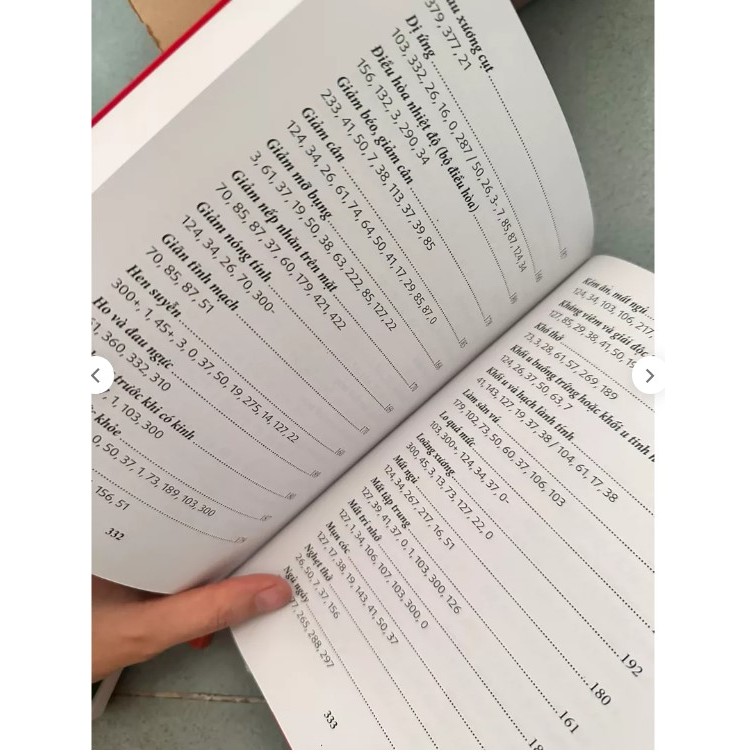 au xương cụt
379, 377, 21
Dị ứng
103, 332, 26, 16, 0, 287 / 50, 26, 3-, 7, 85, 87, 124, 34
Điều hòa nhiệt độ (bộ điều hòa)
156, 132, 3, 290, 34
Giảm béo, giảm cân
233, 41, 50, 7, 38, 113, 37, 39, 85
Giảm cân
124, 34, 26, 61, 74, 64, 50, 41, 17, 29, 85, 87, 0
Giảm mỡ bụng
3, 61, 37, 19, 50, 38, 63, 222, 85, 127, 22
Giảm nếp nhăn trên mặt
70, 85, 87, 37, 60, 179, 421, 422
Giảm nóng tính
124, 34, 26, 70, 300-
Giãn tĩnh mạch
70, 85, 87, 51
Hen suyễn
300+, 1, 45+, 3, 0, 37, 50, 19, 275, 14, 127, 22
Ho và đau ngực
360, 332, 310
trước khi có kinh
1, 103, 300
khỏe
0, 50, 37, 1, 73, 189, 103, 300
156, 51
332
Kém ăn, mất ngủ
124, 34, 103, 106, 217
Kháng viêm và giải độc
127, 85, 29, 38, 41, 50
Khó thở
73, 3, 28, 61, 57, 269, 189
Khối u buồng trứng hoặc khối u tinh
124, 26, 37, 50, 63, 7
Khối u và hạch lành tính
41, 143, 127, 19, 37, 38 / 104, 61, 17, 38
Làm săn vú
179, 102, 73, 50, 60, 37, 106, 103
Lo quá mức
103, 300+, 124, 34, 37, 0-
Loãng xương
300, 45, 3, 13, 73, 127, 22, 0
Mất ngủ
124, 34, 267, 217, 16, 51
Mất tập trung
127, 39, 41, 37, 0, 1, 103, 300, 126
Mất trí nhớ
127, 1, 34, 106, 107, 103, 300, 0
Mụn cóc
127, 17, 38, 19, 143, 41, 50, 37
192
Nghẹt thở
26, 50, 7, 37, 156
180
Ngủ ngáy
265, 288, 297
161
333